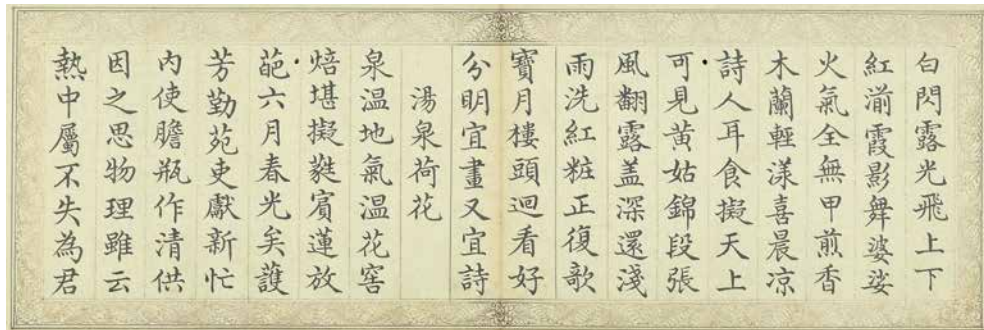 白閃露光飛上下
紅湔霞影舞婆娑
火氣全無甲煎香
木蘭輕漾喜晨凉
詩人耳食擬天上
可見黄姑錦段張
風翻露盖深還淺
雨洗紅粧正復歌
寶月樓頭迴看好
分明宜畫又宜詩
湯泉荷花
泉温地氣温花窖
焙堪擬蕤賓蓮放
葩六月春光矣蘐
芳勤苑吏獻新忙
内使膽瓶作清供
因之思物理雖云
熱中屬不失為君